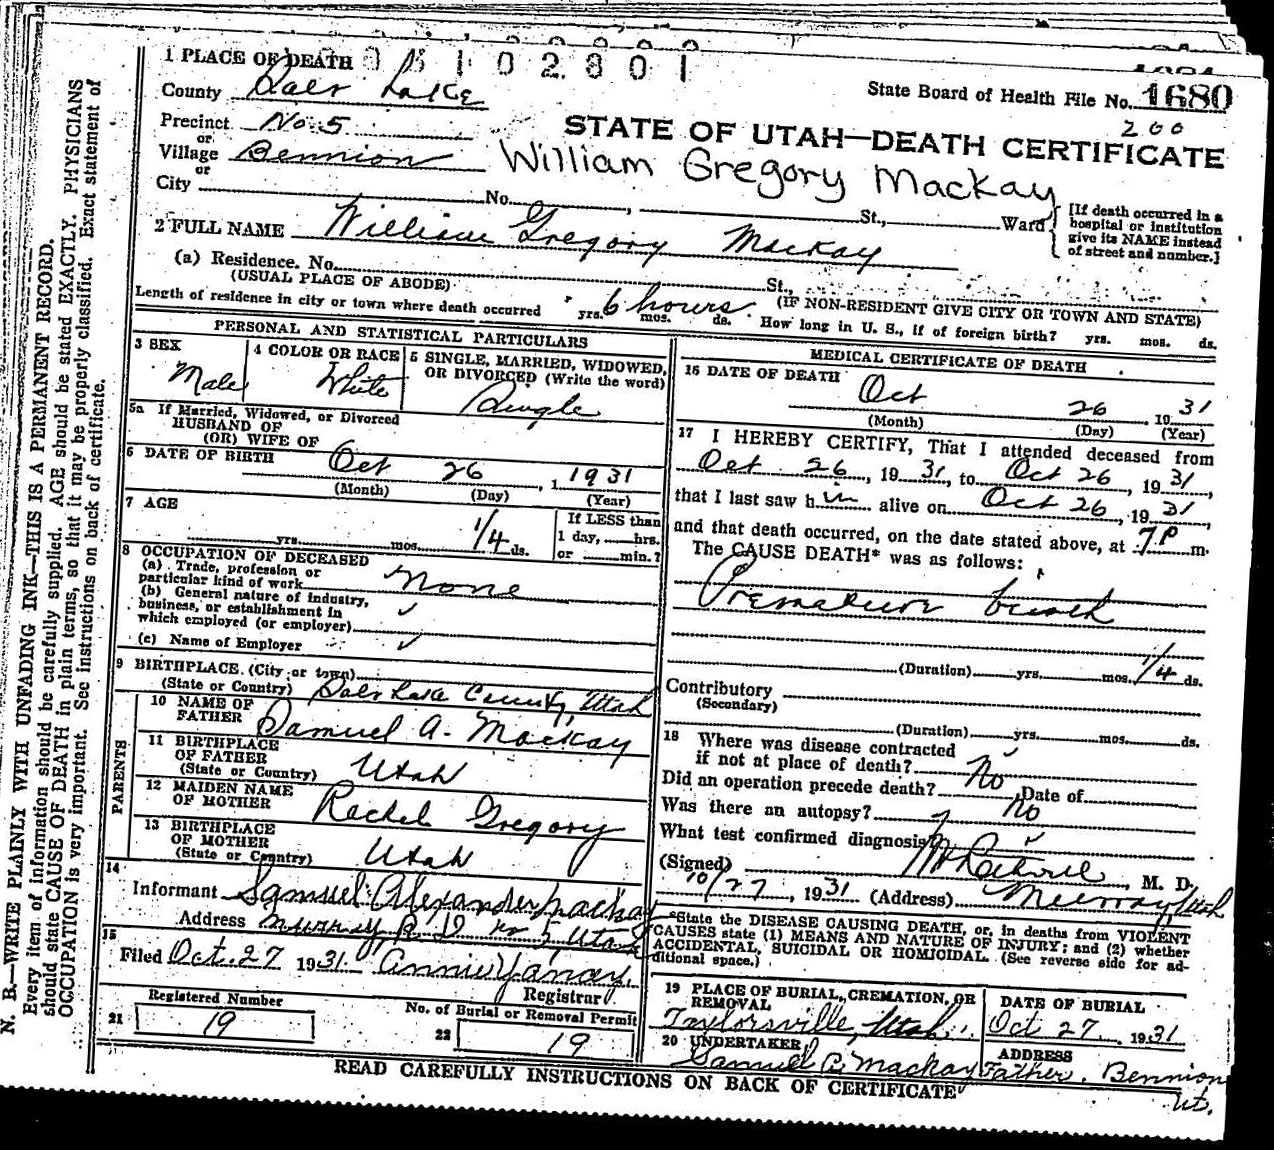 1 PLACE OF DEATH
County Salt Lake
State Board of Health File No. 1680
200
Precinct No. 5
or
Village Bennion
or
City No. St., Ward
STATE OF UTAH—DEATH CERTIFICATE
William Gregory Mackay
[If death occurred in a hospital or institution give its NAME instead of street and number.]
2 FULL NAME William Gregory Mackay
(a) Residence. No. St.,
(USUAL PLACE OF ABODE) (IF NON-RESIDENT GIVE CITY OR TOWN AND STATE)
Length of residence in city or town where death occurred yrs. 6 hours mos. ds. How long in U. S., if of foreign birth? yrs. mos. ds.
PERSONAL AND STATISTICAL PARTICULARS
3 SEX
Male
4 COLOR OR RACE
White
5 SINGLE, MARRIED, WIDOWED, OR DIVORCED (Write the word)
Single
5a If Married, Widowed, or Divorced
HUSBAND OF
(OR) WIFE OF
6 DATE OF BIRTH Oct 26, 1931
(Month) (Day) (Year)
7 AGE
yrs. mos. 1/4 ds.
If LESS than
1 day, hrs.
or min.?
8 OCCUPATION OF DECEASED
(a) Trade, profession or
particular kind of work None
(b) General nature of industry,
business, or establishment in
which employed (or employer)
(c) Name of Employer
9 BIRTHPLACE (City or town)
(State or Country) Salt Lake County, Utah
PARENTS
10 NAME OF
FATHER Samuel A. Mackay
11 BIRTHPLACE
OF FATHER
(State or Country) Utah
12 MAIDEN NAME
OF MOTHER Rachel Gregory
13 BIRTHPLACE
OF MOTHER
(State or Country) Utah
14
Informant Samuel Alexander Mackay
Address Murray R. D. No 5, Utah
15
Filed Oct. 27 1931
Registrar
Registered Number
21 19
No. of Burial or Removal Permit
22 19
MEDICAL CERTIFICATE OF DEATH
16 DATE OF DEATH Oct 26 1931
(Month) (Day) (Year)
17 I HEREBY CERTIFY, That I attended deceased from
Oct 26, 1931, to Oct 26, 1931,
that I last saw him alive on Oct 26, 1931,
and that death occurred, on the date stated above, at 7 P m.
The CAUSE DEATH* was as follows:
Premature birth
(Duration) yrs. mos. 1/4 ds.
Contributory
(Secondary)
(Duration) yrs. mos. ds.
18 Where was disease contracted
if not at place of death?
Did an operation precede death? No Date of
Was there an autopsy? No
What test confirmed diagnosis?
(Signed) M. D.
10/27, 1931 (Address) Murray, Utah
*State the DISEASE CAUSING DEATH, or, in deaths from VIOLENT
CAUSES state (1) MEANS AND NATURE OF INJURY; and (2) whether
ACCIDENTAL, SUICIDAL OR HOMICIDAL. (See reverse side for ad-
ditional space.)
19 PLACE OF BURIAL, CREMATION, OR
REMOVAL
Taylorsville, Utah
DATE OF BURIAL
Oct 27, 1931
20 UNDERTAKER
Samuel A. Mackay
ADDRESS
Father. Bennion
Ut.
READ CAREFULLY INSTRUCTIONS ON BACK OF CERTIFICATE
N. B.—WRITE PLAINLY WITH UNFADING INK—THIS IS A PERMANENT RECORD.
Every item of information should be carefully supplied. AGE should be stated EXACTLY. PHYSICIANS
should state CAUSE OF DEATH in plain terms, so that it may be properly classified. Exact statement of
OCCUPATION is very important. See instructions on back of certificate.